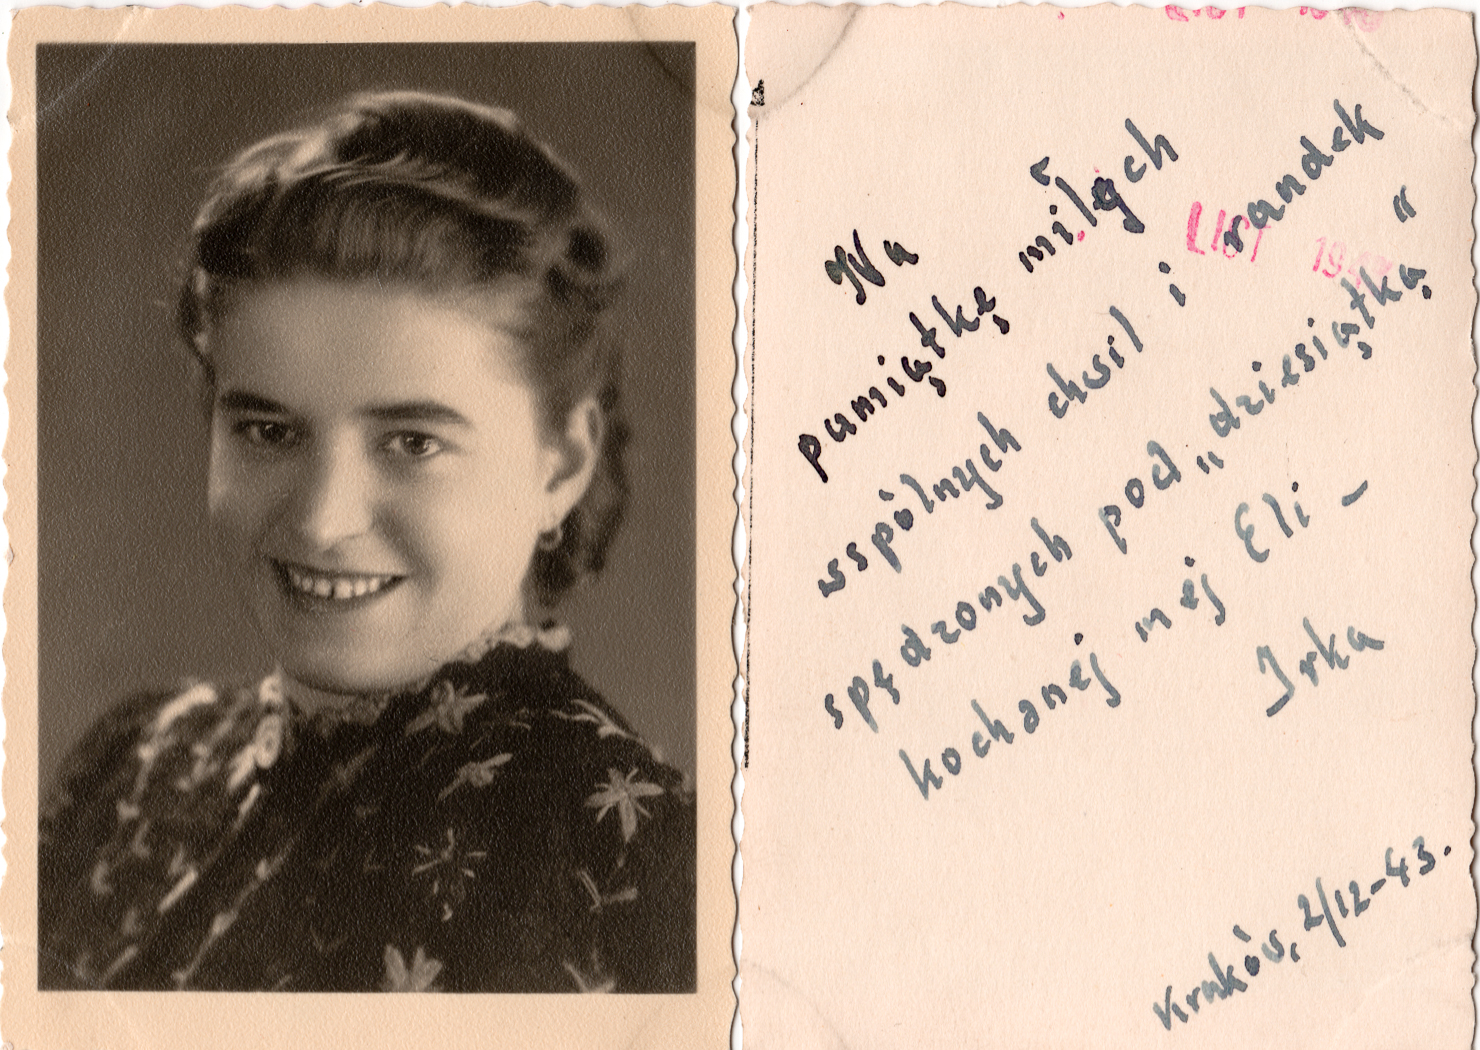 LIST
Na
pamiątkę miłych
wspólnych chwil i randek
LIST 194
spędzonych pod „dziesiątką"
kochanej mej Eli –
Irka
Kraków, 2/12-43.